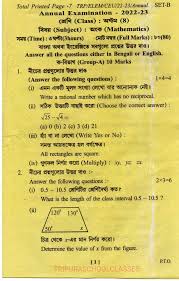 Total Printed Page -7 TRP/ELEM/CEU/22-23/Annual SET-B
Annual Examination - 2022-23
শ্রেণি (Class) : অষ্টম (8)
বিষয় (Subject) : অঙ্ক (Mathematics)
সময় (Time) : ৩ ঘণ্টা (Hours) মোট নম্বর (Full Marks) : ৮০ (80)
বাংলা অথবা ইংরেজিতে সবগুলো প্রশ্নের উত্তর দাও।
Answer all the questions either in Bengali or English.
ক-বিভাগ (Group-A) 10 Marks
1. নীচের প্রশ্নগুলোর উত্তর দাও :
(Answer the following questions) 1×4=4
(i) একটি মূলদ সংখ্যা লেখো যার অন্যোন্যক নেই।
Write a rational number which has no reciprocal.
(ii) সঠিক উত্তরটি বাছাই করো : (Choose the correct answer)
25 – 25 =
(a) 0 (b) 2 (c) 3 (d) 21
(iii) হ্যাঁ বা না লেখো (Write Yes or No) :
সমস্ত আয়তক্ষেত্র হল বর্গক্ষেত্র।
All rectangles are square
(iv) গুণফল নির্ণয় করো (Multiply) :
2. নীচের প্রশ্নগুলোর উত্তর দাও :
Answer the following questions : 2×3=6
(i) 0.5 – 10.5 শ্রেণিটির শ্রেণিদৈর্ঘ্য কত ?
What is the length of the class interval 0.5 – 10.5 ?
(ii)
120° 130°
50° x
চিত্র থেকে x-এর মান নির্ণয় করো।
Determine the value of x from the figure.
[ 1 ] P.T.O.
TRIPURA SCHOOL CLASSES